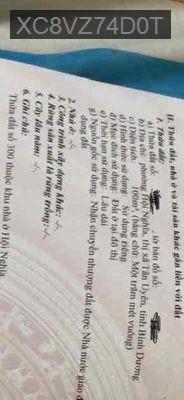 XC8VZ74D0T
II. Thửa đất, nhà ở và tài sản khác gắn liền với đất
1. Thửa đất:
a) Thửa đất số: , tờ bản đồ số:
b) Địa chỉ: phường Hội Nghĩa, thị xã Tân Uyên, tỉnh Bình Dương
c) Diện tích: 100m², (bằng chữ: Một trăm mét vuông)
d) Hình thức sử dụng: Sử dụng riêng
đ) Mục đích sử dụng: Đất ở tại đô thị
e) Thời hạn sử dụng: Lâu dài
g) Nguồn gốc sử dụng: Nhận chuyển nhượng đất được Nhà nước giao đ
dụng đất
2. Nhà ở: -/-.
3. Công trình xây dựng khác: -/-.
4. Rừng sản xuất là rừng trồng: -/-.
5. Cây lâu năm: -/-.
6. Ghi chú:
Thửa đất số 300 thuộc khu nhà ở Hội Nghĩa